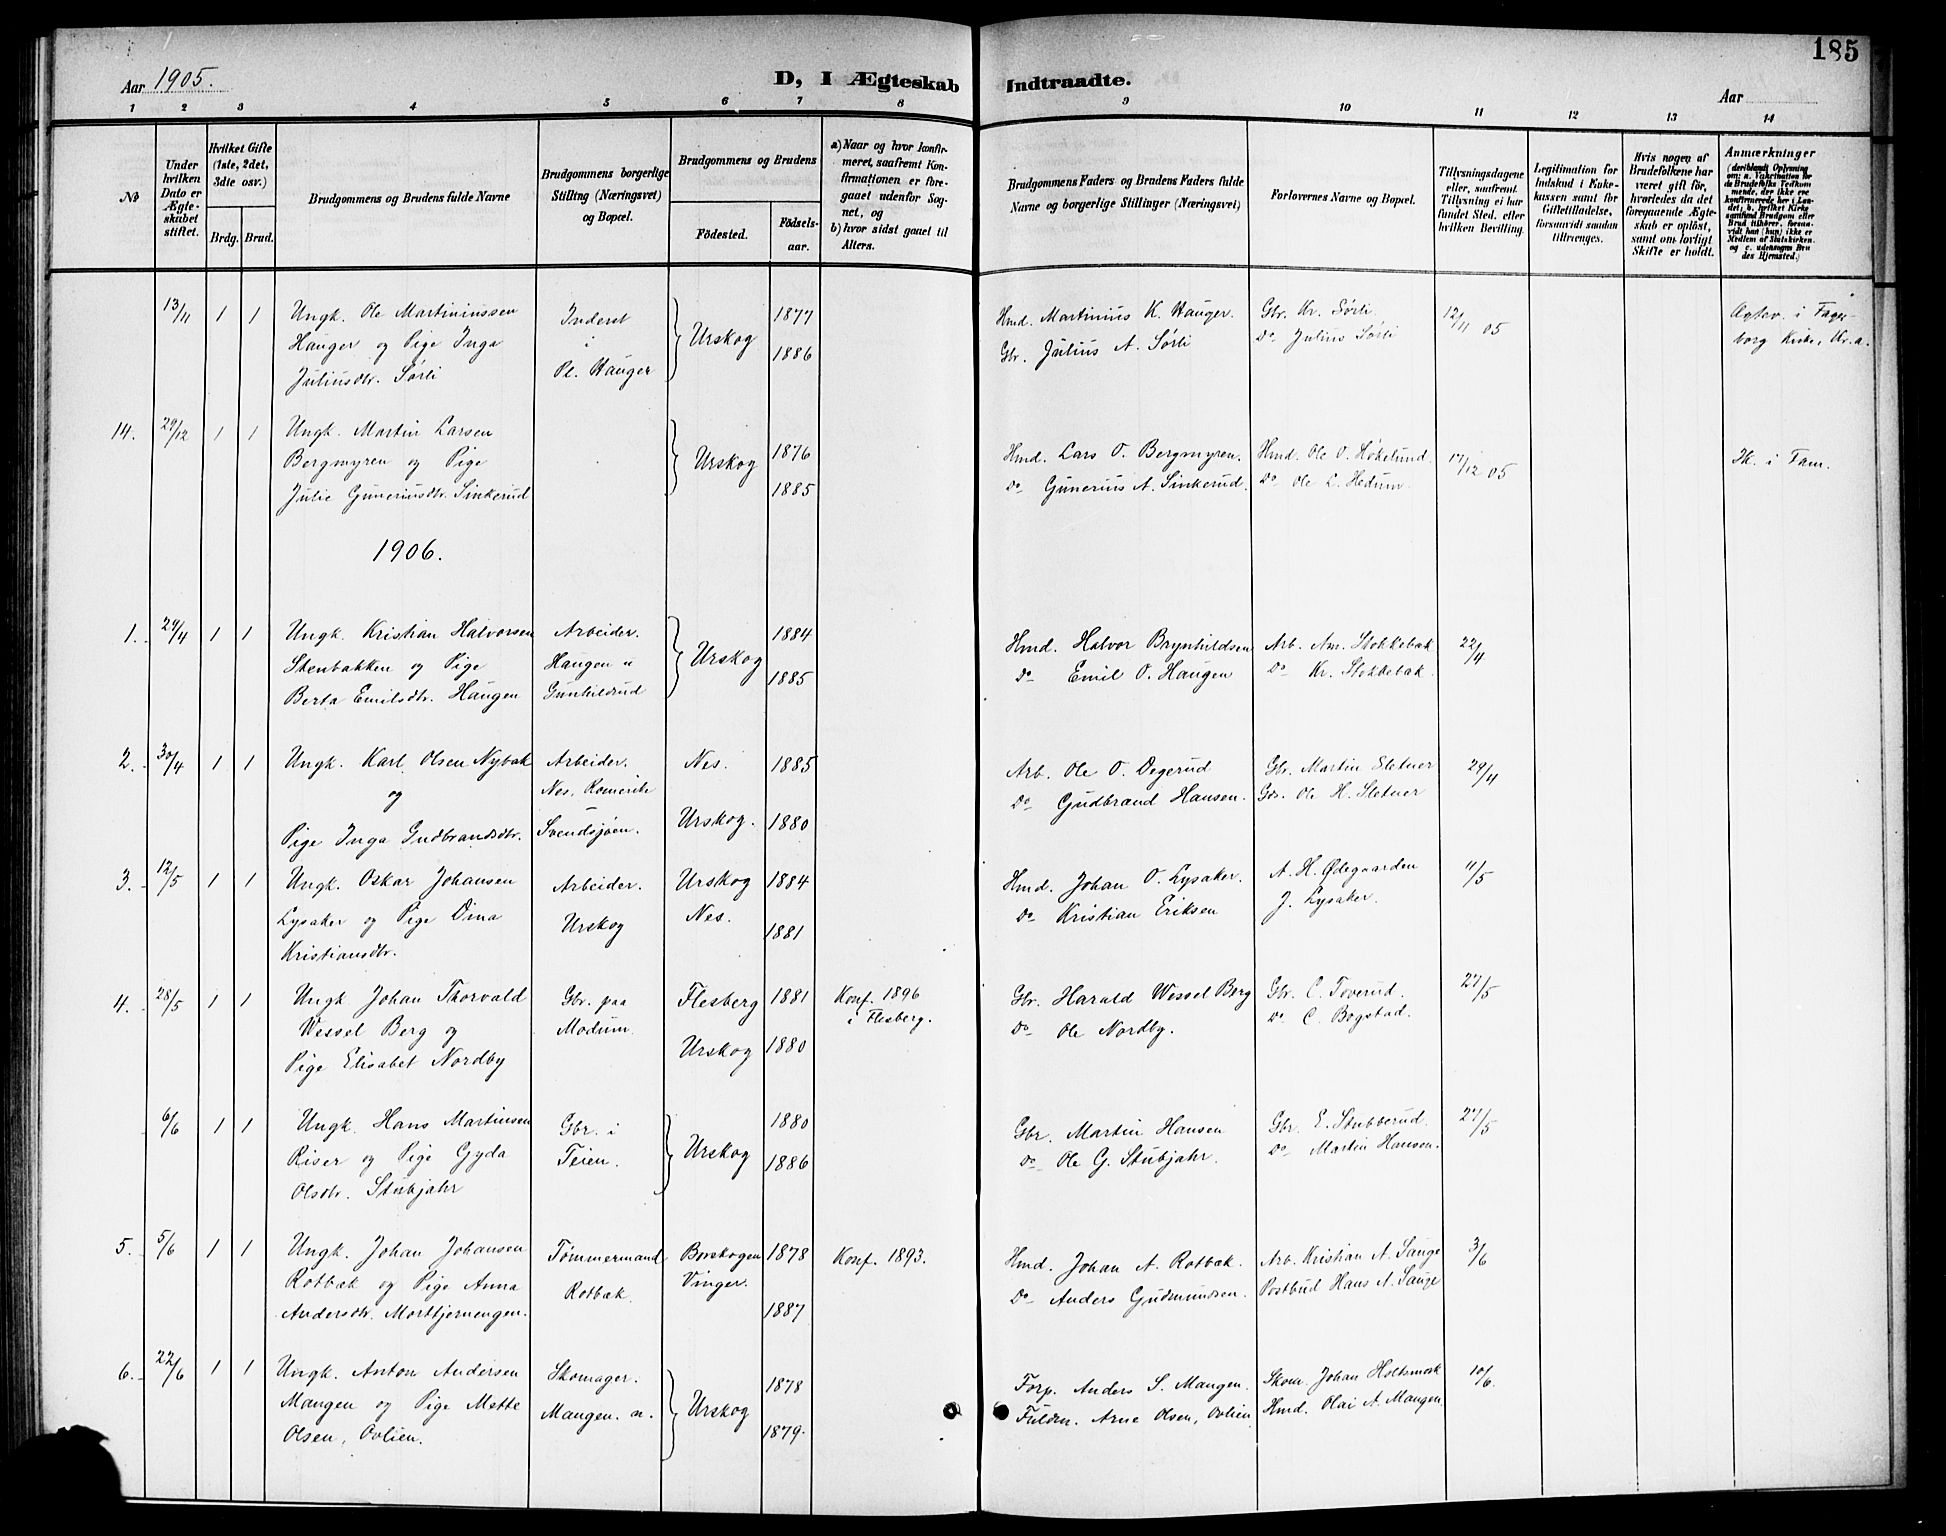 185
Aar 1905.
D, I Ægteskab Indtraadte.
Aar
1 2 3 4 5 6 7 8 9 10 11 12 13 14
No
Under hvilken Dato er Ægteskabet stiftet.
Hvilket Gifte (1ste, 2det, 3die osv.)
Brdg. Brud.
Brudgommens og Brudens fulde Navne
Brudgommens borgerlige Stilling (Næringsvei) og Bopæl.
Brudgommens og Brudens
Fødested. Fødsels-aar.
a) Naar og hvor konfirmeret, saafremt Konfirmationen er foregaaet udenfor Sognet, og
b) hvor sidst gaaet til Alters.
Brudgommens Faders og Brudens Faders fulde Navne og borgerlige Stillinger (Næringsvei)
Forlovernes Navne og Bopæl.
Tillysningsdagene eller, saafremt Tillysning ei har fundet Sted, efter hvilken Bevilling.
Legitimation for Indskud i Enkekassen samt for Giftetilladelse, forsaavidt saadan tiltrænges.
Hvis nogen af Brudefolkene har været gift før, hvorledes da det foregaaende Ægteskab er opløst, samt om lovligt Skifte er holdt.
Anmærkninger
13/11 1 1 Ungk. Ole Martiniussen Inderst Urskog 1877 Hmd. Martinius K. Hauger. Gbr. Kr. Sørli 12/11 05 i Fager-
Hauger og Pige Inga i 1886 Gbr. Julius A. Sørli Do Julius Sørli borg Kirke, Kr.a.
Juliusdtr. Sørli Pl. Hauger
14. 29/12 1 1 Ungk. Martin Larsen Urskog 1876 Hmd. Lars O. Bergmyren. Hmd. Ole O. Høkelund. 17/12 05 i Fam.
Bergmyren og Pige 1885 Do Gunerius A. Sinkerud. Do Ole L. Hedum.
Julie Guneriusdtr. Sinkerud
1906.
1. 29/4 1 1 Ungk. Kristian Halvorsen Arbeider. Urskog 1884 Hmd. Halvor Brynhildsen Arb. Am. Stokkebæk 22/4
Stenbakken og Pige Haugen u 1885 Do Emil O. Haugen Do Kr. Stokkebæk.
Berta Emilsdtr. Haugen Gunhildrud
2. 30/4 1 1 Ungk. Karl Olsen Nybak Arbeider. Nes. 1885 Arb. Ole O. Degerud Gbr. Martin Sletner 29/4
og Nes, Romerike Do Gudbrand Hansen. Gds. Ole H. Sletner
Pige Inga Gudbrandsdtr. Svendsjøen. Urskog. 1880
3. 12/5 1 1 Ungk. Oskar Johansen Arbeider. Urskog 1884 Hmd. Johan O. Lysaker. A. H. Ødegaarden 11/5
Lysaker og Pige Dina Urskog Nes. 1881 Do Kristian Eriksen J. Lysaker.
Kristiansdtr.
4. 28/5 1 1 Ungk Johan Thorvald Gbr. paa Flesberg 1881 Konf. 1896 Gbr. Harald Wessel Berg Gbr. C. Toverud. 27/5
Wessel Berg og Modum. i Flesberg. Do Ole Nordby. Do C. Bogstad.
Pige Elisabet Nordby Urskog 1880
6/6 1 1 Ungk. Hans Martinsen Gbr. i Urskog 1880 Gbr. Martin Hansen Gbr. E. Stubberud. 27/5
Riser og Pige Gyda Teien. 1886 Do Ole G. Stubjahr. Do Martin Hansen.
Olsdtr. Stubjahr
5. 5/6 1 1 Ungk. Johan Johansen Tømmermand Borskogen 1878 Konf. 1893. Hmd. Johan A. Rotbæk. Arb. Kristian A. Sauge 3/6
Rotbæk og Pige Anna Rotbæk Vinger. 1887 Do Anders Gudmundsen. Postbud Hans A. Sauge
Andersdtr. Mortkjernengen.
6. 22/6 1 1 Ungk. Anton Andersen Skomager. Urskog 1878 Forp. Anders S. Mangen. Skom. Johan Holtsmark 10/6.
Mangen og Pige Mette Mangen. n. 1879. Fuldm. Arne Olsen, Ovlien. Hmd. Olai A. Mangen
Olsen, Ovlien.